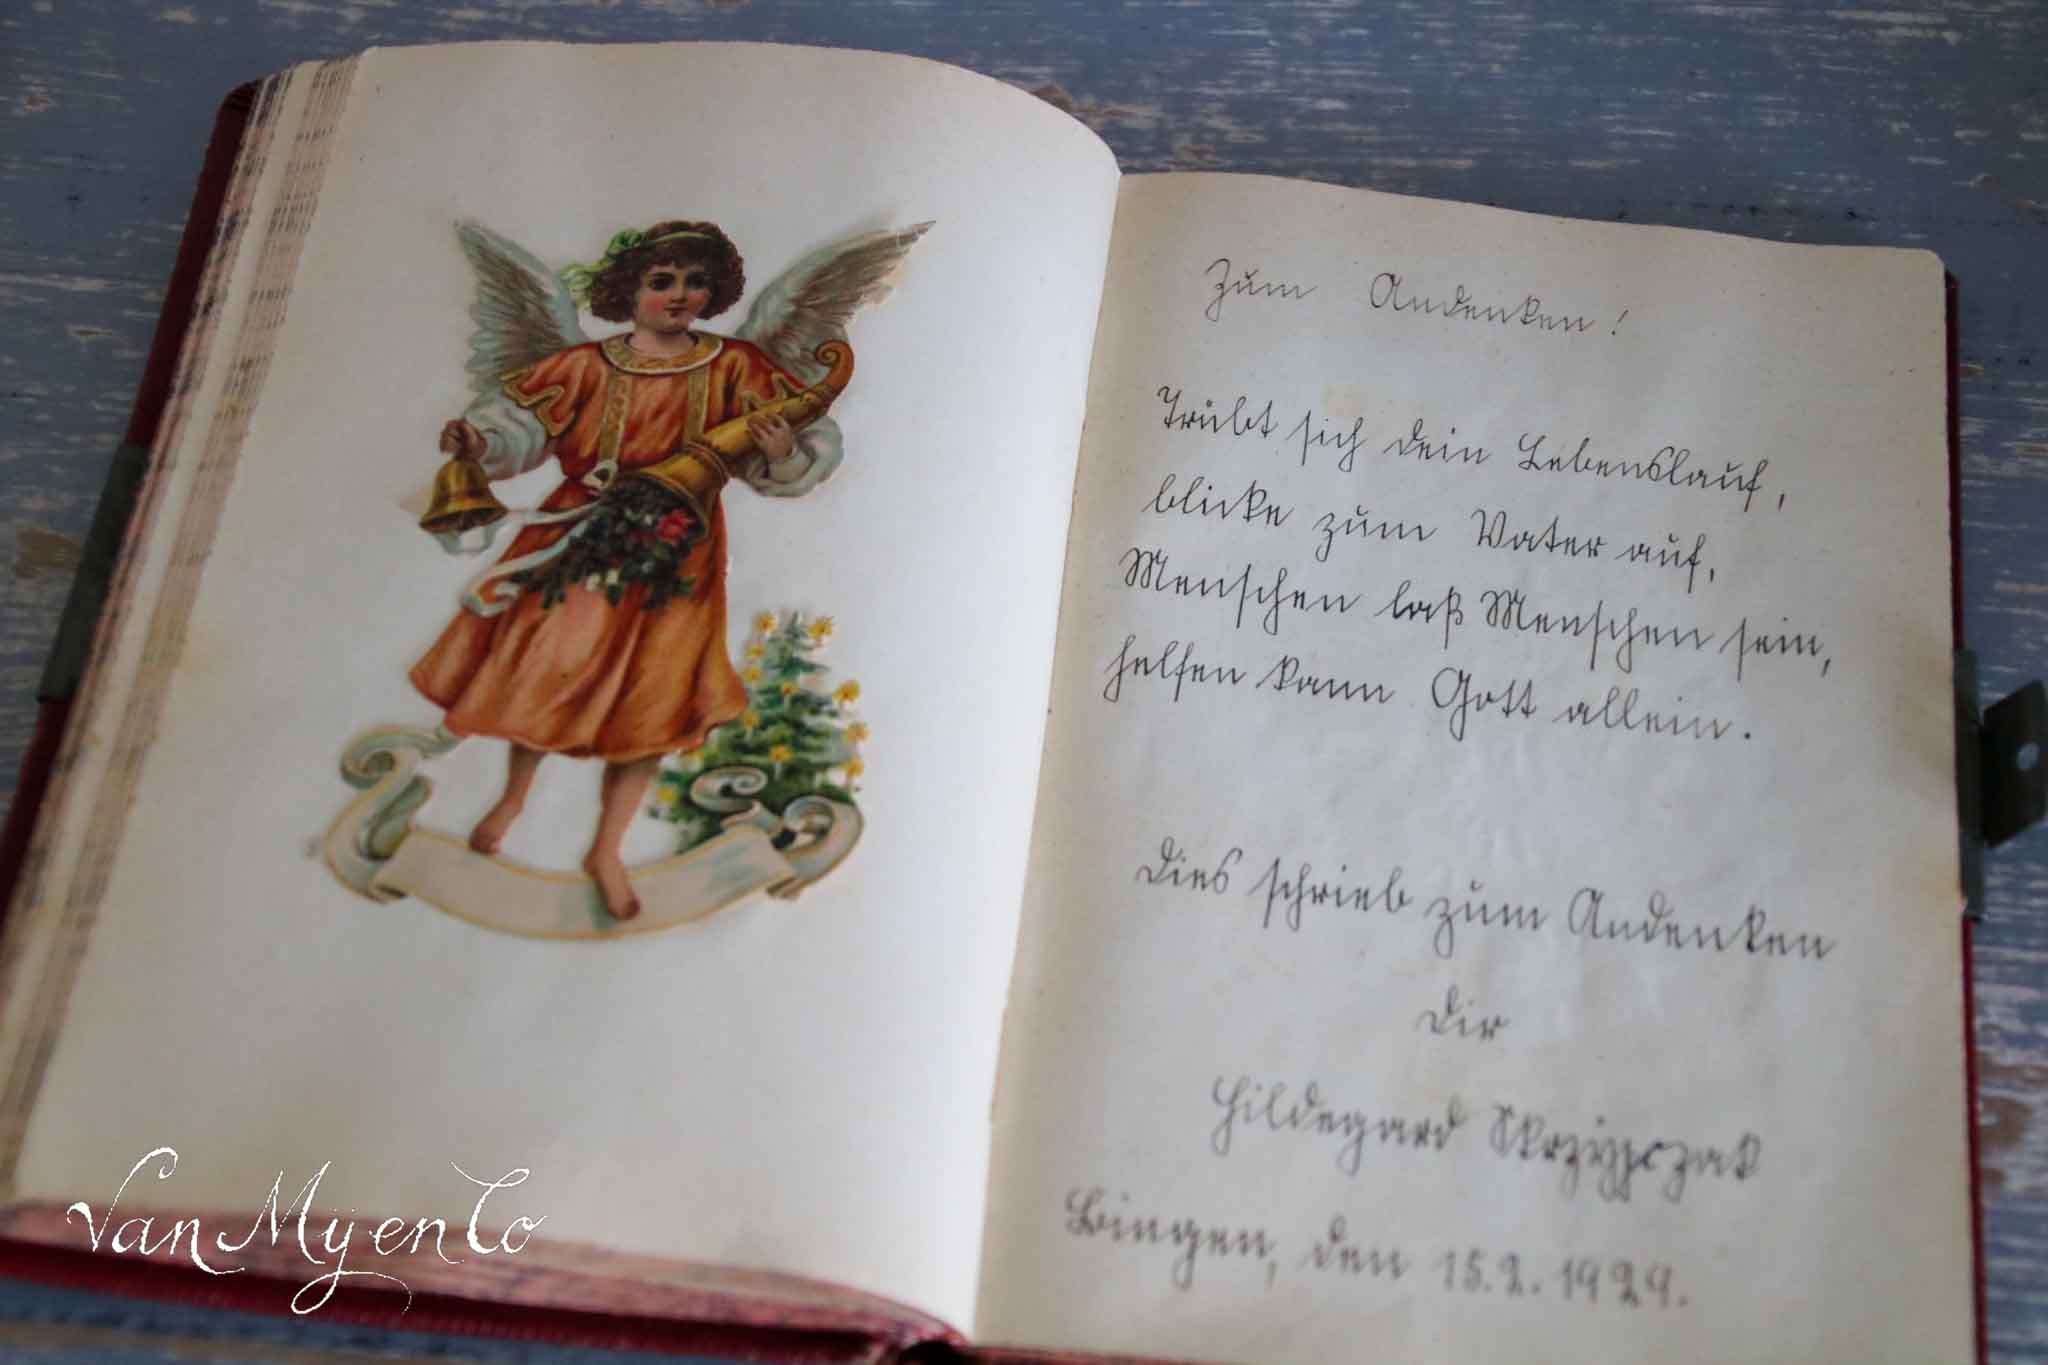 Zum Andenken!
Trübt sich dein Lebenslauf,
blicke zum Vater auf,
Menschen laß Menschen sein,
helfen kann Gott allein.
Dies schrieb zum Andenken
Dir
Hildegard Skrzypczak
Bingen, den 15.2.1929.
Van Mijen Co